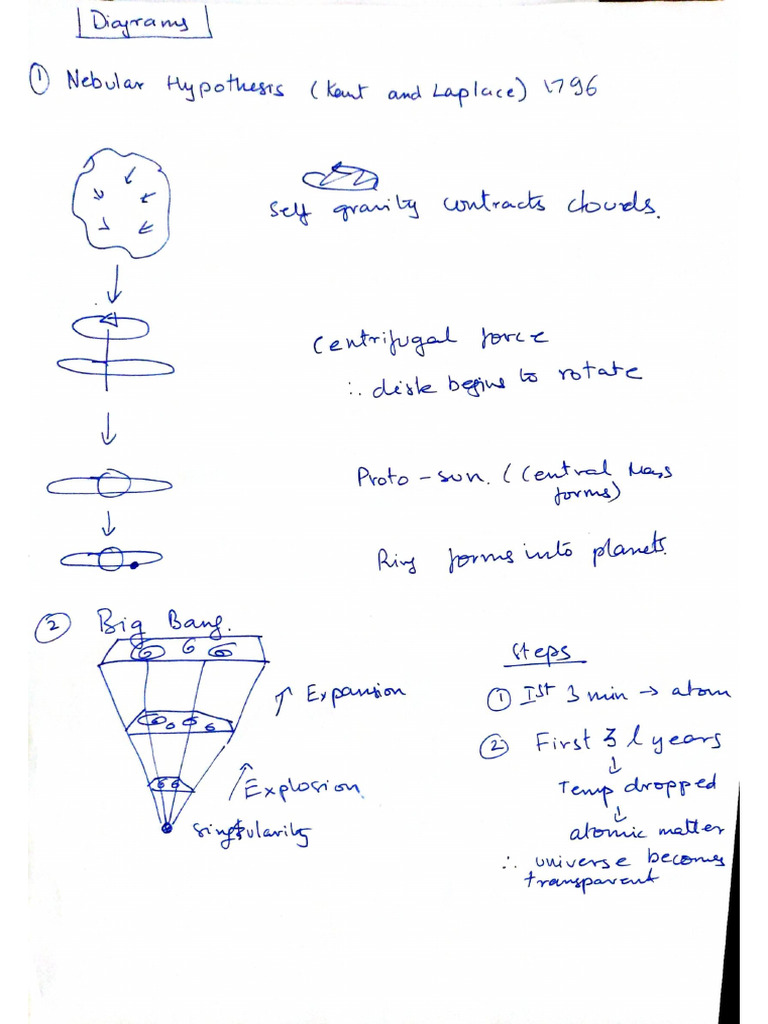 Diagrams
① Nebular Hypothesis (Kant and Laplace) 1796
Self gravity contracts clouds.
Centrifugal force
∴ disk begins to rotate
Proto-sun. (Central Mass
forms)
Ring forms into planets.
② Big Bang.
Expansion
Explosion.
Singularity
Steps
① Ist 3 min → atom
② First 3 l years
↓
Temp dropped
↓
atomic matter
∴ universe becomes
transparent